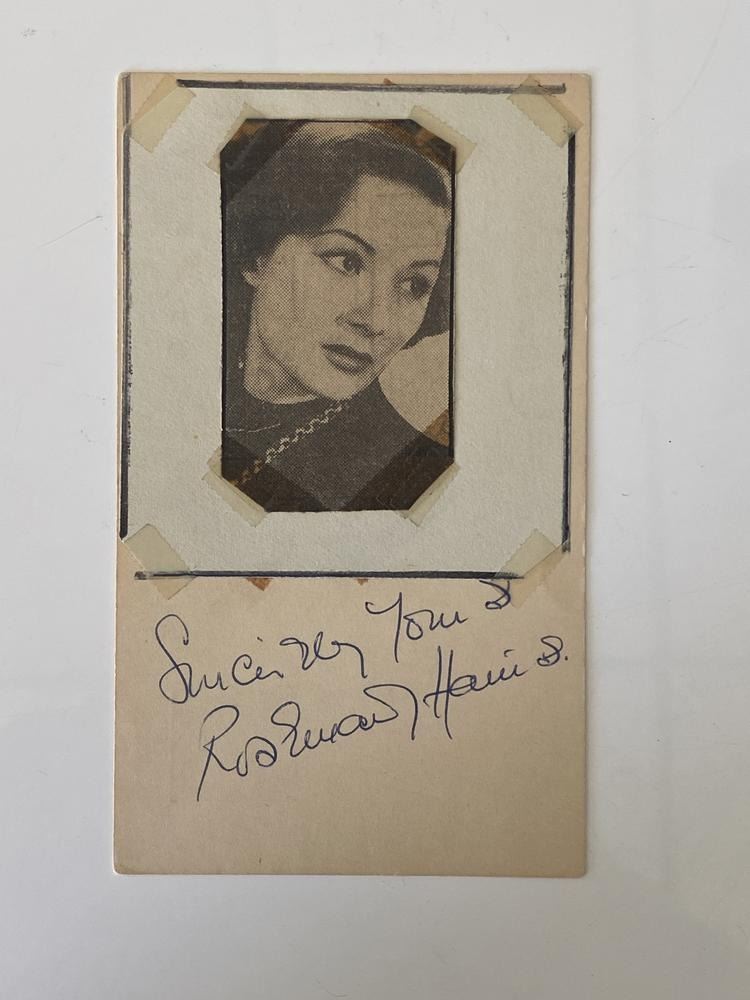 Sincerely Yours
Rosemary Harris.